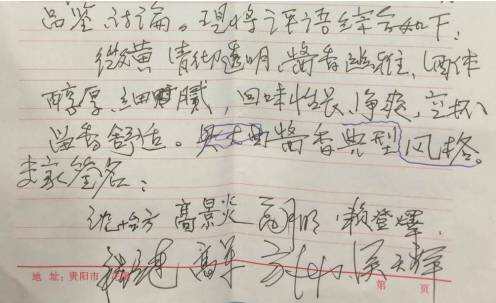 品鉴讨论。现将评语综合如下:
微黄清彻透明,酱香幽雅,酒体
醇厚细腻,回味悠长,净爽,空杯
留香舒适。具酱香典型风格。
专家签名:
沈怡方 高景炎 赖登燡
高军
地址:贵阳市 第 页